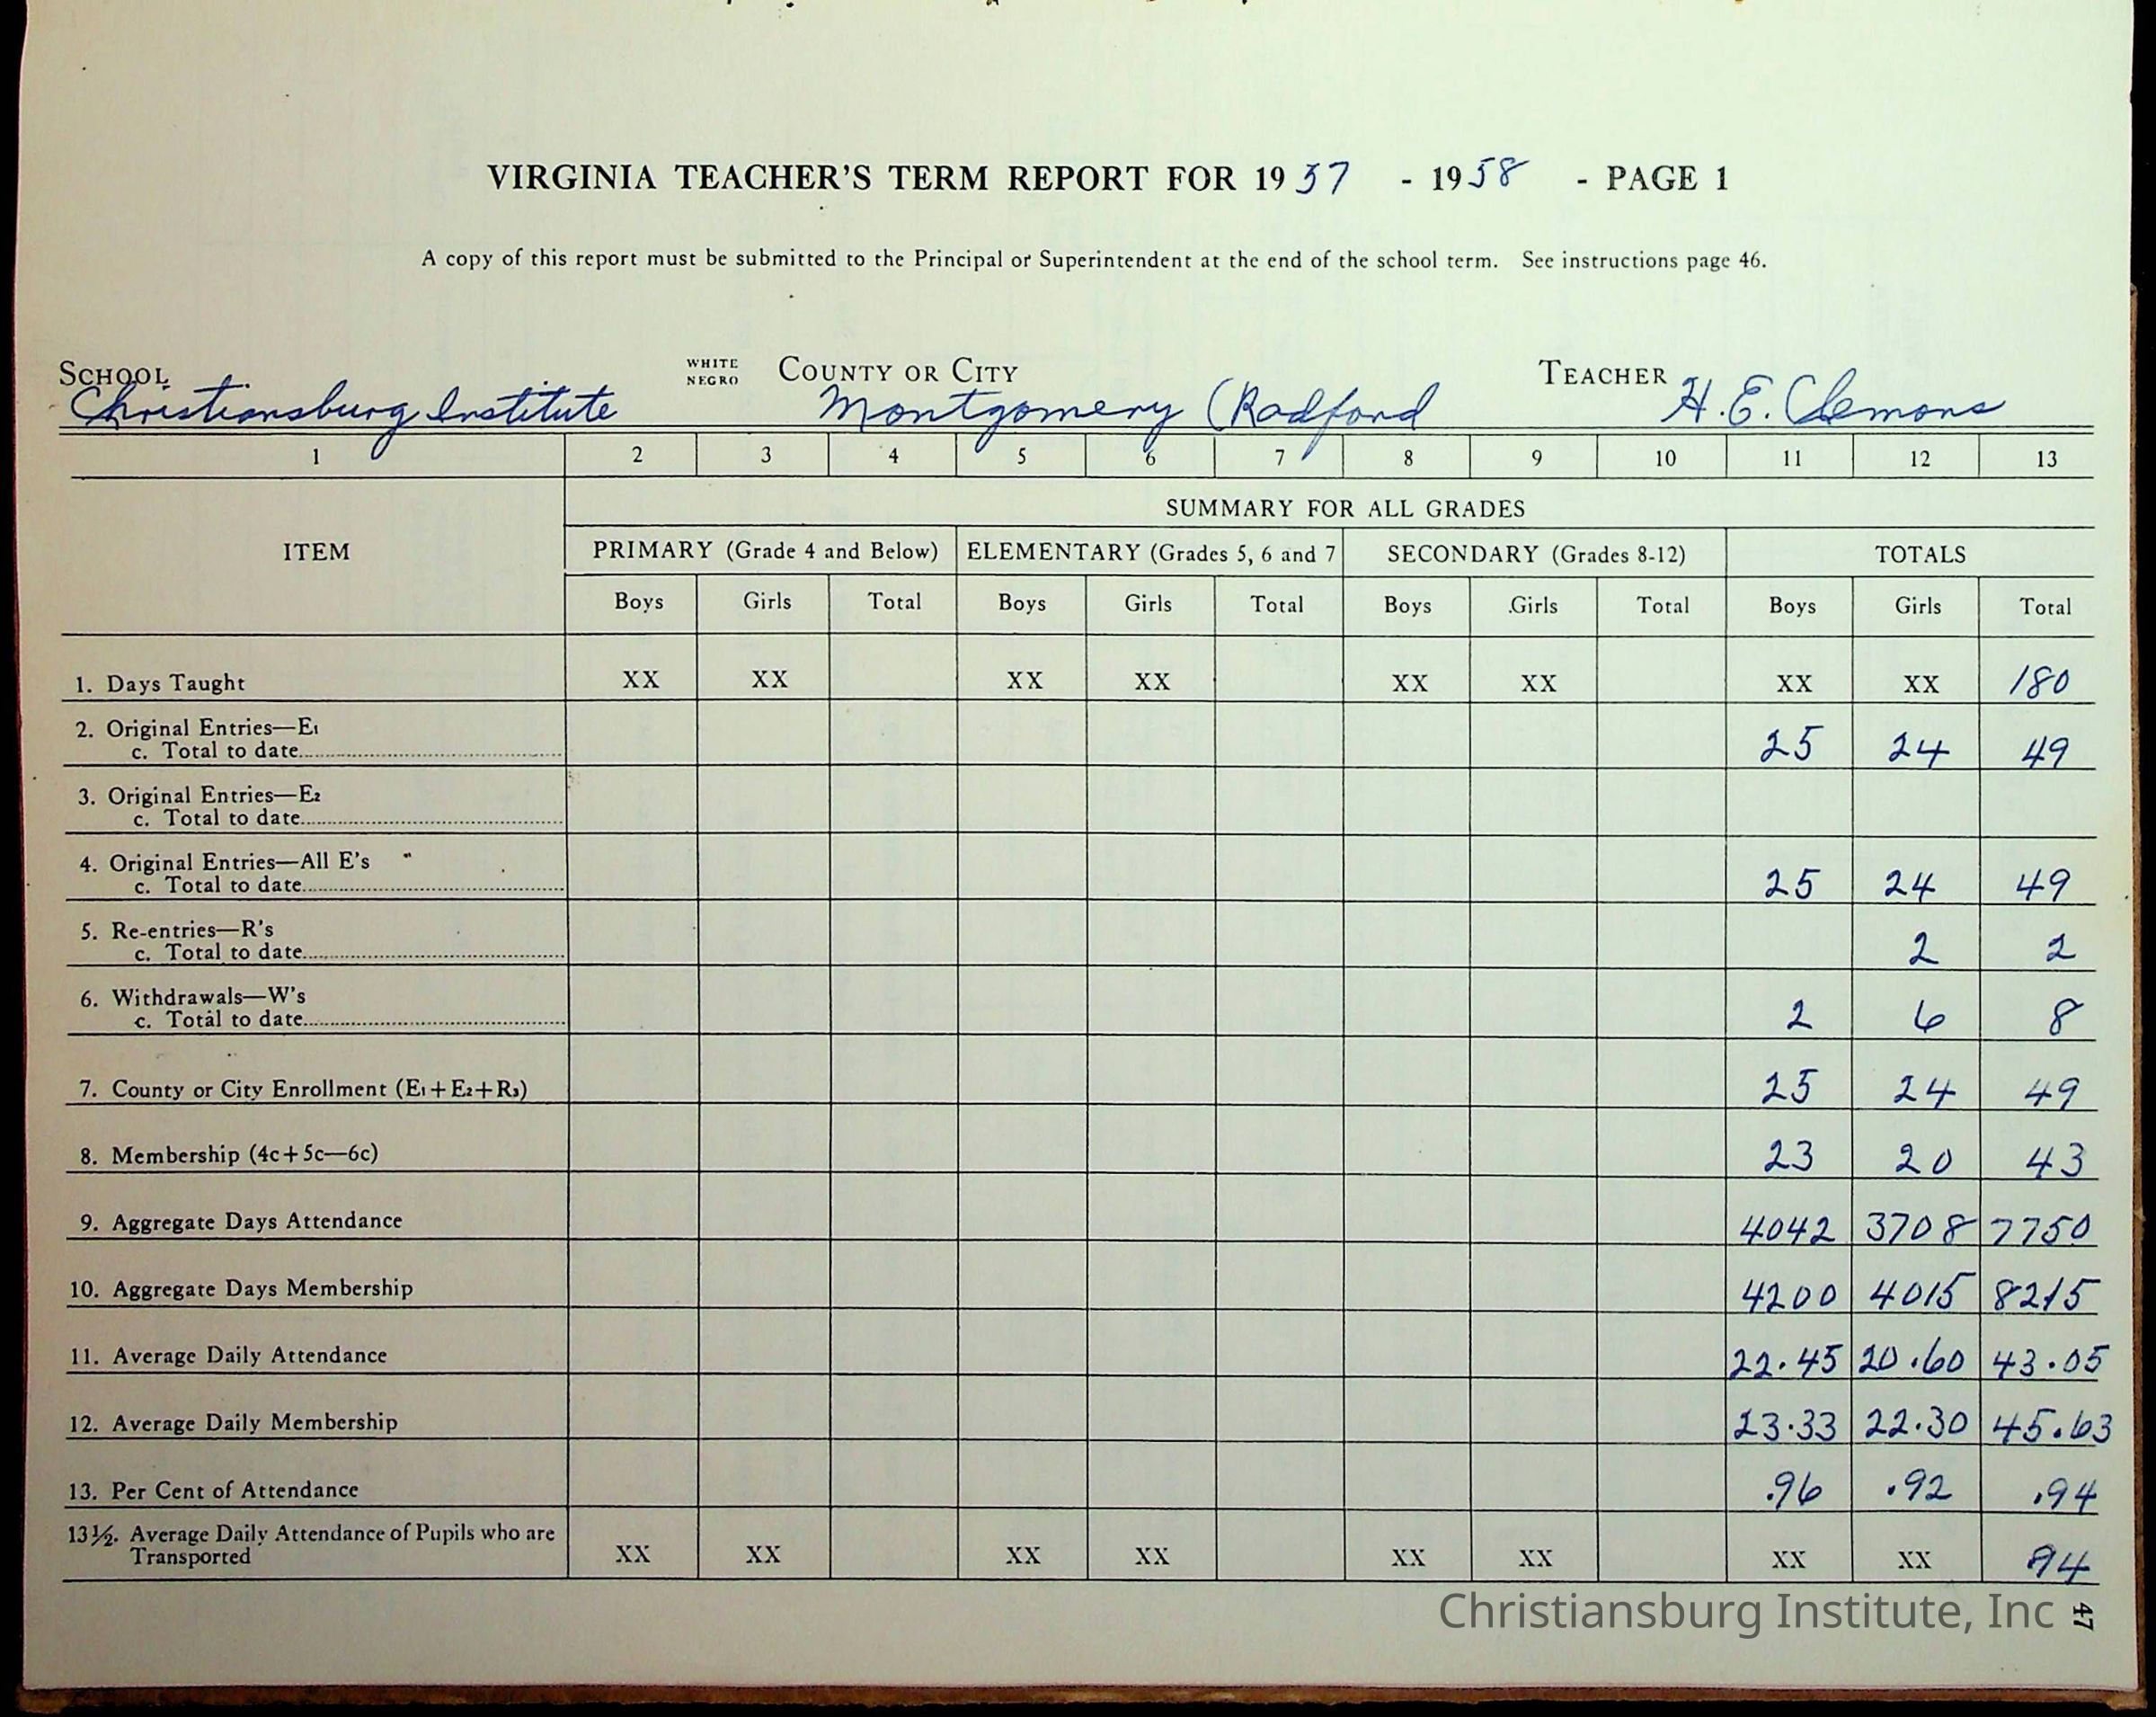 VIRGINIA TEACHER'S TERM REPORT FOR 1957 - 1958 - PAGE 1
A copy of this report must be submitted to the Principal or Superintendent at the end of the school term. See instructions page 46.
SCHOOL Christiansburg Institute WHITE NEGRO COUNTY OR CITY Montgomery (Radford TEACHER H. E. Clemons
1 2 3 4 5 6 7 8 9 10 11 12 13
SUMMARY FOR ALL GRADES
ITEM PRIMARY (Grade 4 and Below) ELEMENTARY (Grades 5, 6 and 7 SECONDARY (Grades 8-12) TOTALS
Boys Girls Total Boys Girls Total Boys Girls Total Boys Girls Total
1. Days Taught XX XX XX XX XX XX XX XX 180
2. Original Entries—E1
c. Total to date 25 24 49
3. Original Entries—E2
c. Total to date
4. Original Entries—All E's
c. Total to date 25 24 49
5. Re-entries—R's
c. Total to date 2 2
6. Withdrawals—W's
c. Total to date 2 6 8
7. County or City Enrollment (E1+E2+R3) 25 24 49
8. Membership (4c+5c—6c) 23 20 43
9. Aggregate Days Attendance 4042 3708 7750
10. Aggregate Days Membership 4200 4015 8215
11. Average Daily Attendance 22.45 20.60 43.05
12. Average Daily Membership 23.33 22.30 45.63
13. Per Cent of Attendance .96 .92 .94
13½. Average Daily Attendance of Pupils who are
Transported XX XX XX XX XX XX XX XX 94
Christiansburg Institute, Inc
47